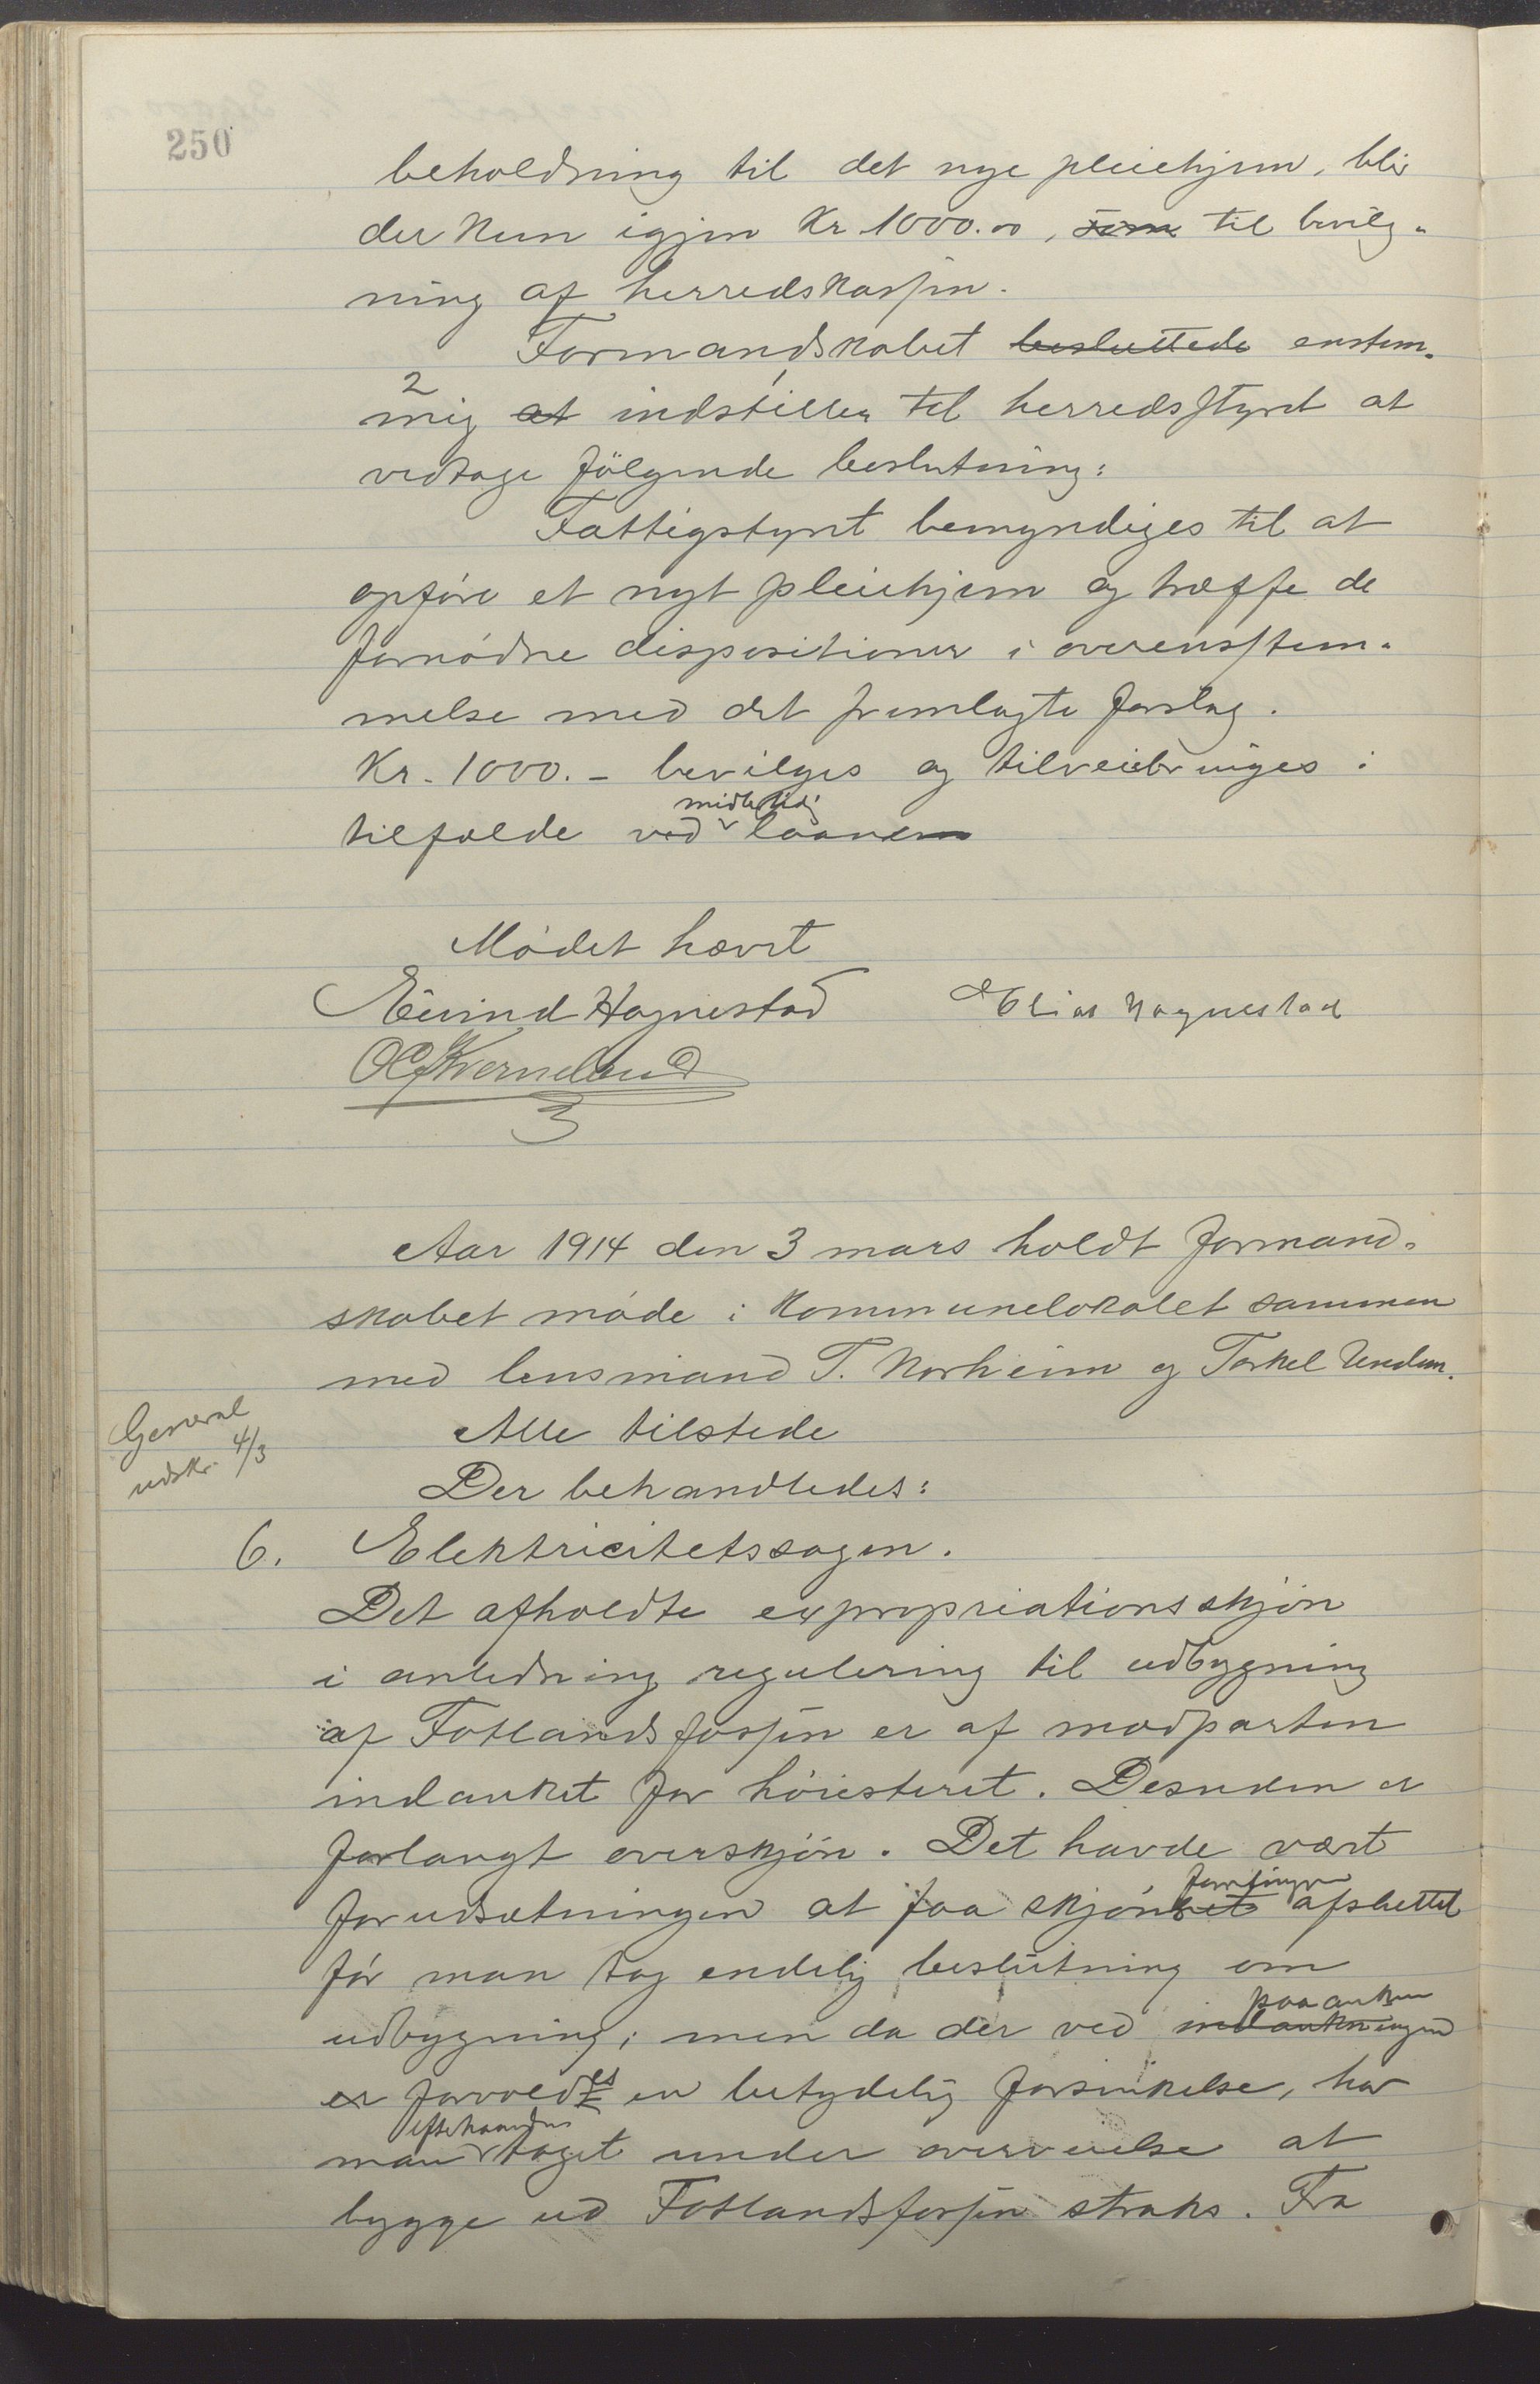 250
beholdning til det nye pleiehjem, blir
der kun igjen Kr 1000.00, som til bevilg-
ning af herredskassen.
Formandskabet besluttede enstem-
2
mig at indstiller til herredsstyret at
vedtage følgende beslutning:
Fattigstyret bemyndiges til at
opføre et nyt pleiehjem og træffe de
fornødne dispositioner i overensstem-
melse med det fremlagte forslag.
Kr. 1000.- bevilges og tilveiebringes i
midlertidig
tilfælde ved laan
Mødet hævet
Eivind Hognestad Elias Hognestad
O Kverneland
Aar 1914 den 3 mars holdt formand-
skabet møde i kommunelokalet sammen
med lensmand T. Norheim og Torkel Undem.
General
udskr. 4/3
Alle tilstede
Der behandledes:
6. Elektricitetssagen.
Det afholdte expropriationsskjøn
i anledning regulering til udbygning
af Fotlandsfossen er af modparten
indanket for høiesteret. Desuden er
forlangt overskjøn. Det havde vært
forudsætningen at faa skjønnet afsluttet
før man tog endelig beslutning om
paa anken
udbygning; men da der ved indankningen
er forvoldes en betydelig forsinkelse, har
efterhaanden
man taget under overveielse at
bygge ud Fotlandsfossen straks. Fra